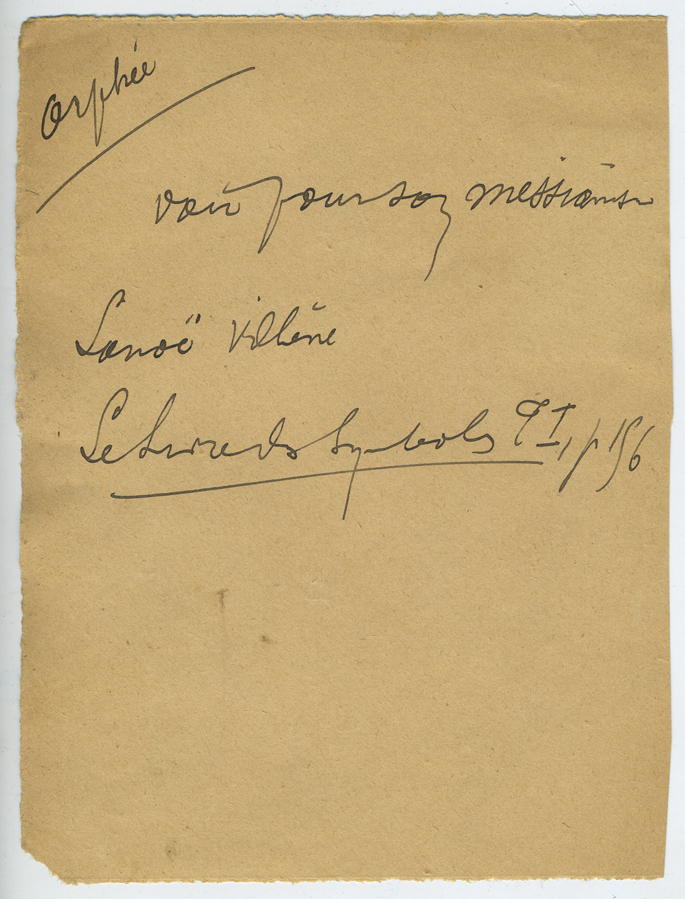 Orphée
voir pour son messianisme
Lanoë Villène
Le Livre des Symboles T I, p 156